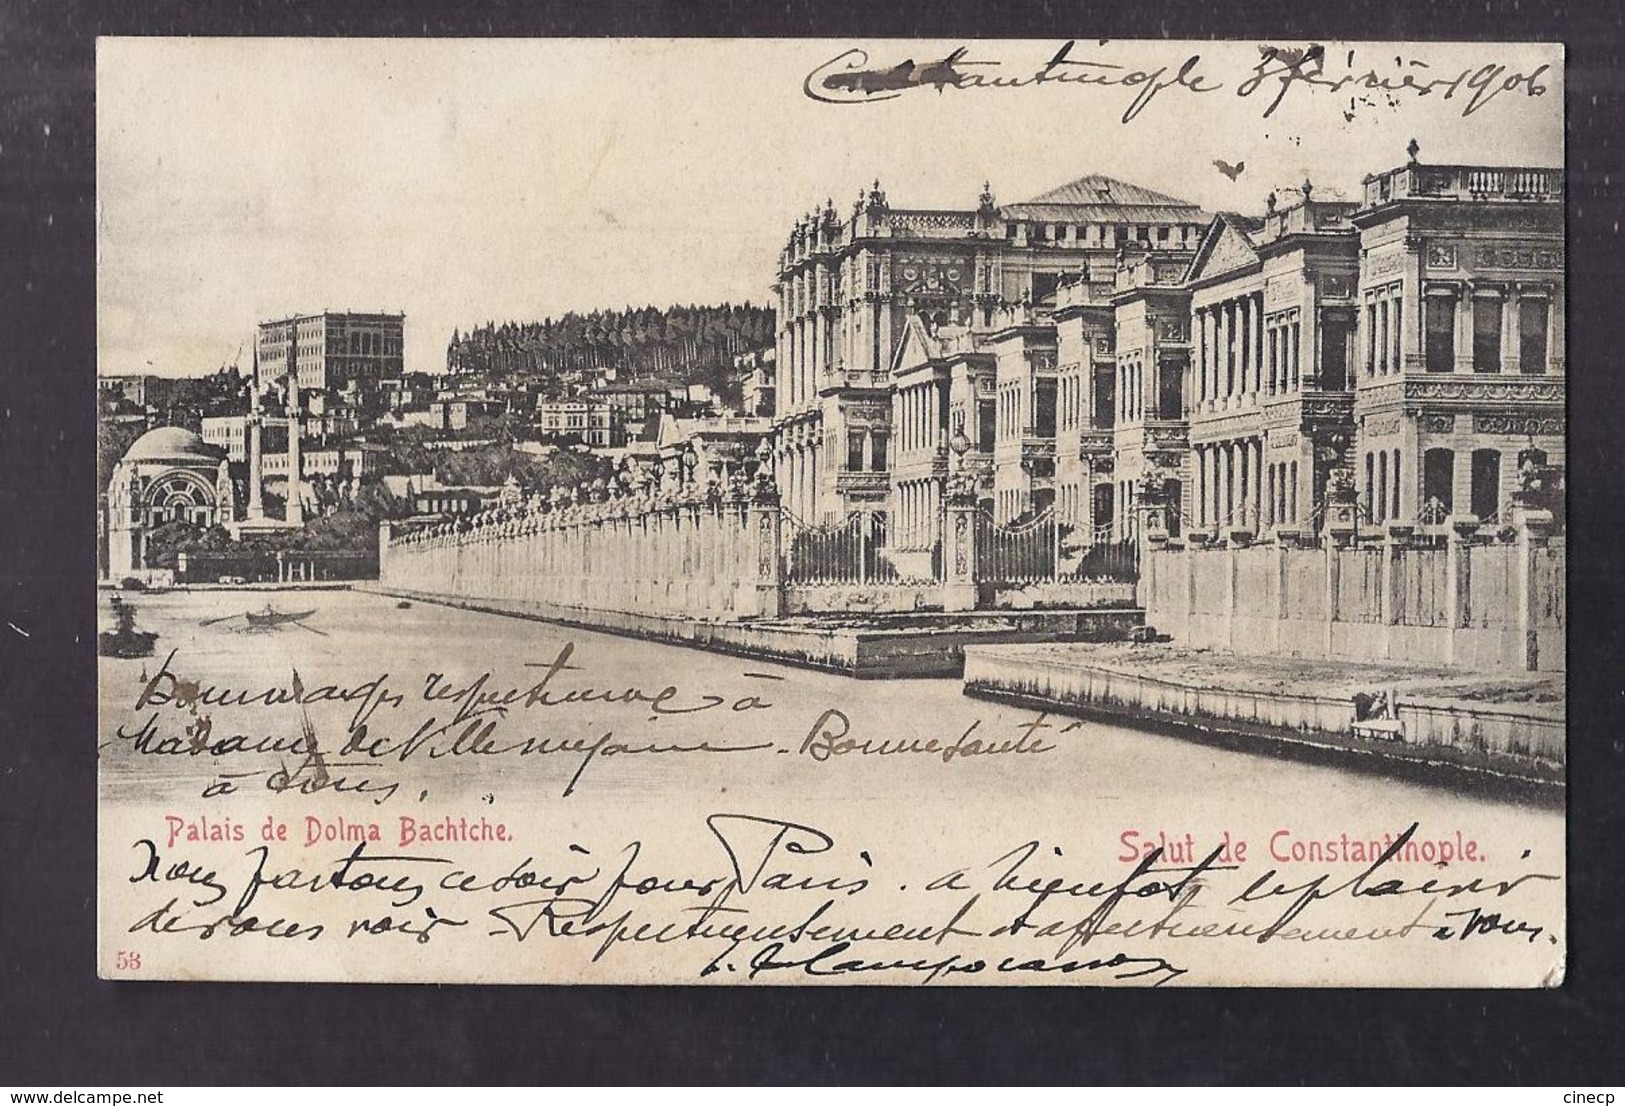 Constantinople 3 février 1906
respectueux à
Madame de Villemejane - Bonne santé
à tous.
Palais de Dolma Bachtche.
Salut de Constantinople.
Nous partons ce soir pour Paris. a bientôt le plaisir
de vous voir - Respectueusement et affectueusement à vous.
53
delcampe.net
cinecp